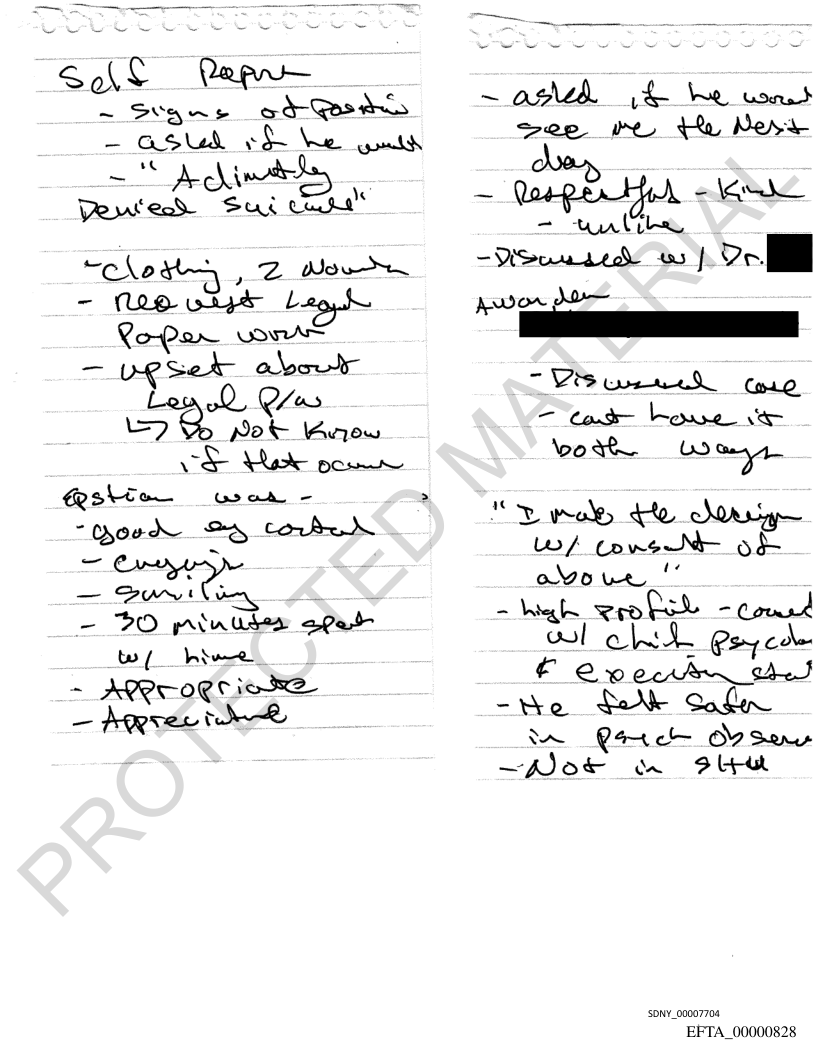 Self Report
- Signs of
- asked if he
- "Adimatly
Denied Suicide"
- clothing, 2
- Request Legal
Paper work
- upset about
Legal P/W
↳ Do Not Know
if that
Epstien was -
- good ey
- engagin
- Smiling
- 30 minutes spent
w/ hime
- Appropriate
- Appreciative
- asked if he
see me the Next
day
- Respectful - Kind
- unlike
- Discussed w/ Dr.
AWarden
- Discussed case
- cant have it
both ways
"I make the
w/ consult of
above"
- high profile -
w/ chief
&
- He felt Safer
in psych observ
- Not in SHU
PROTECTED MATERIAL
SDNY_00007704
EFTA_00000828